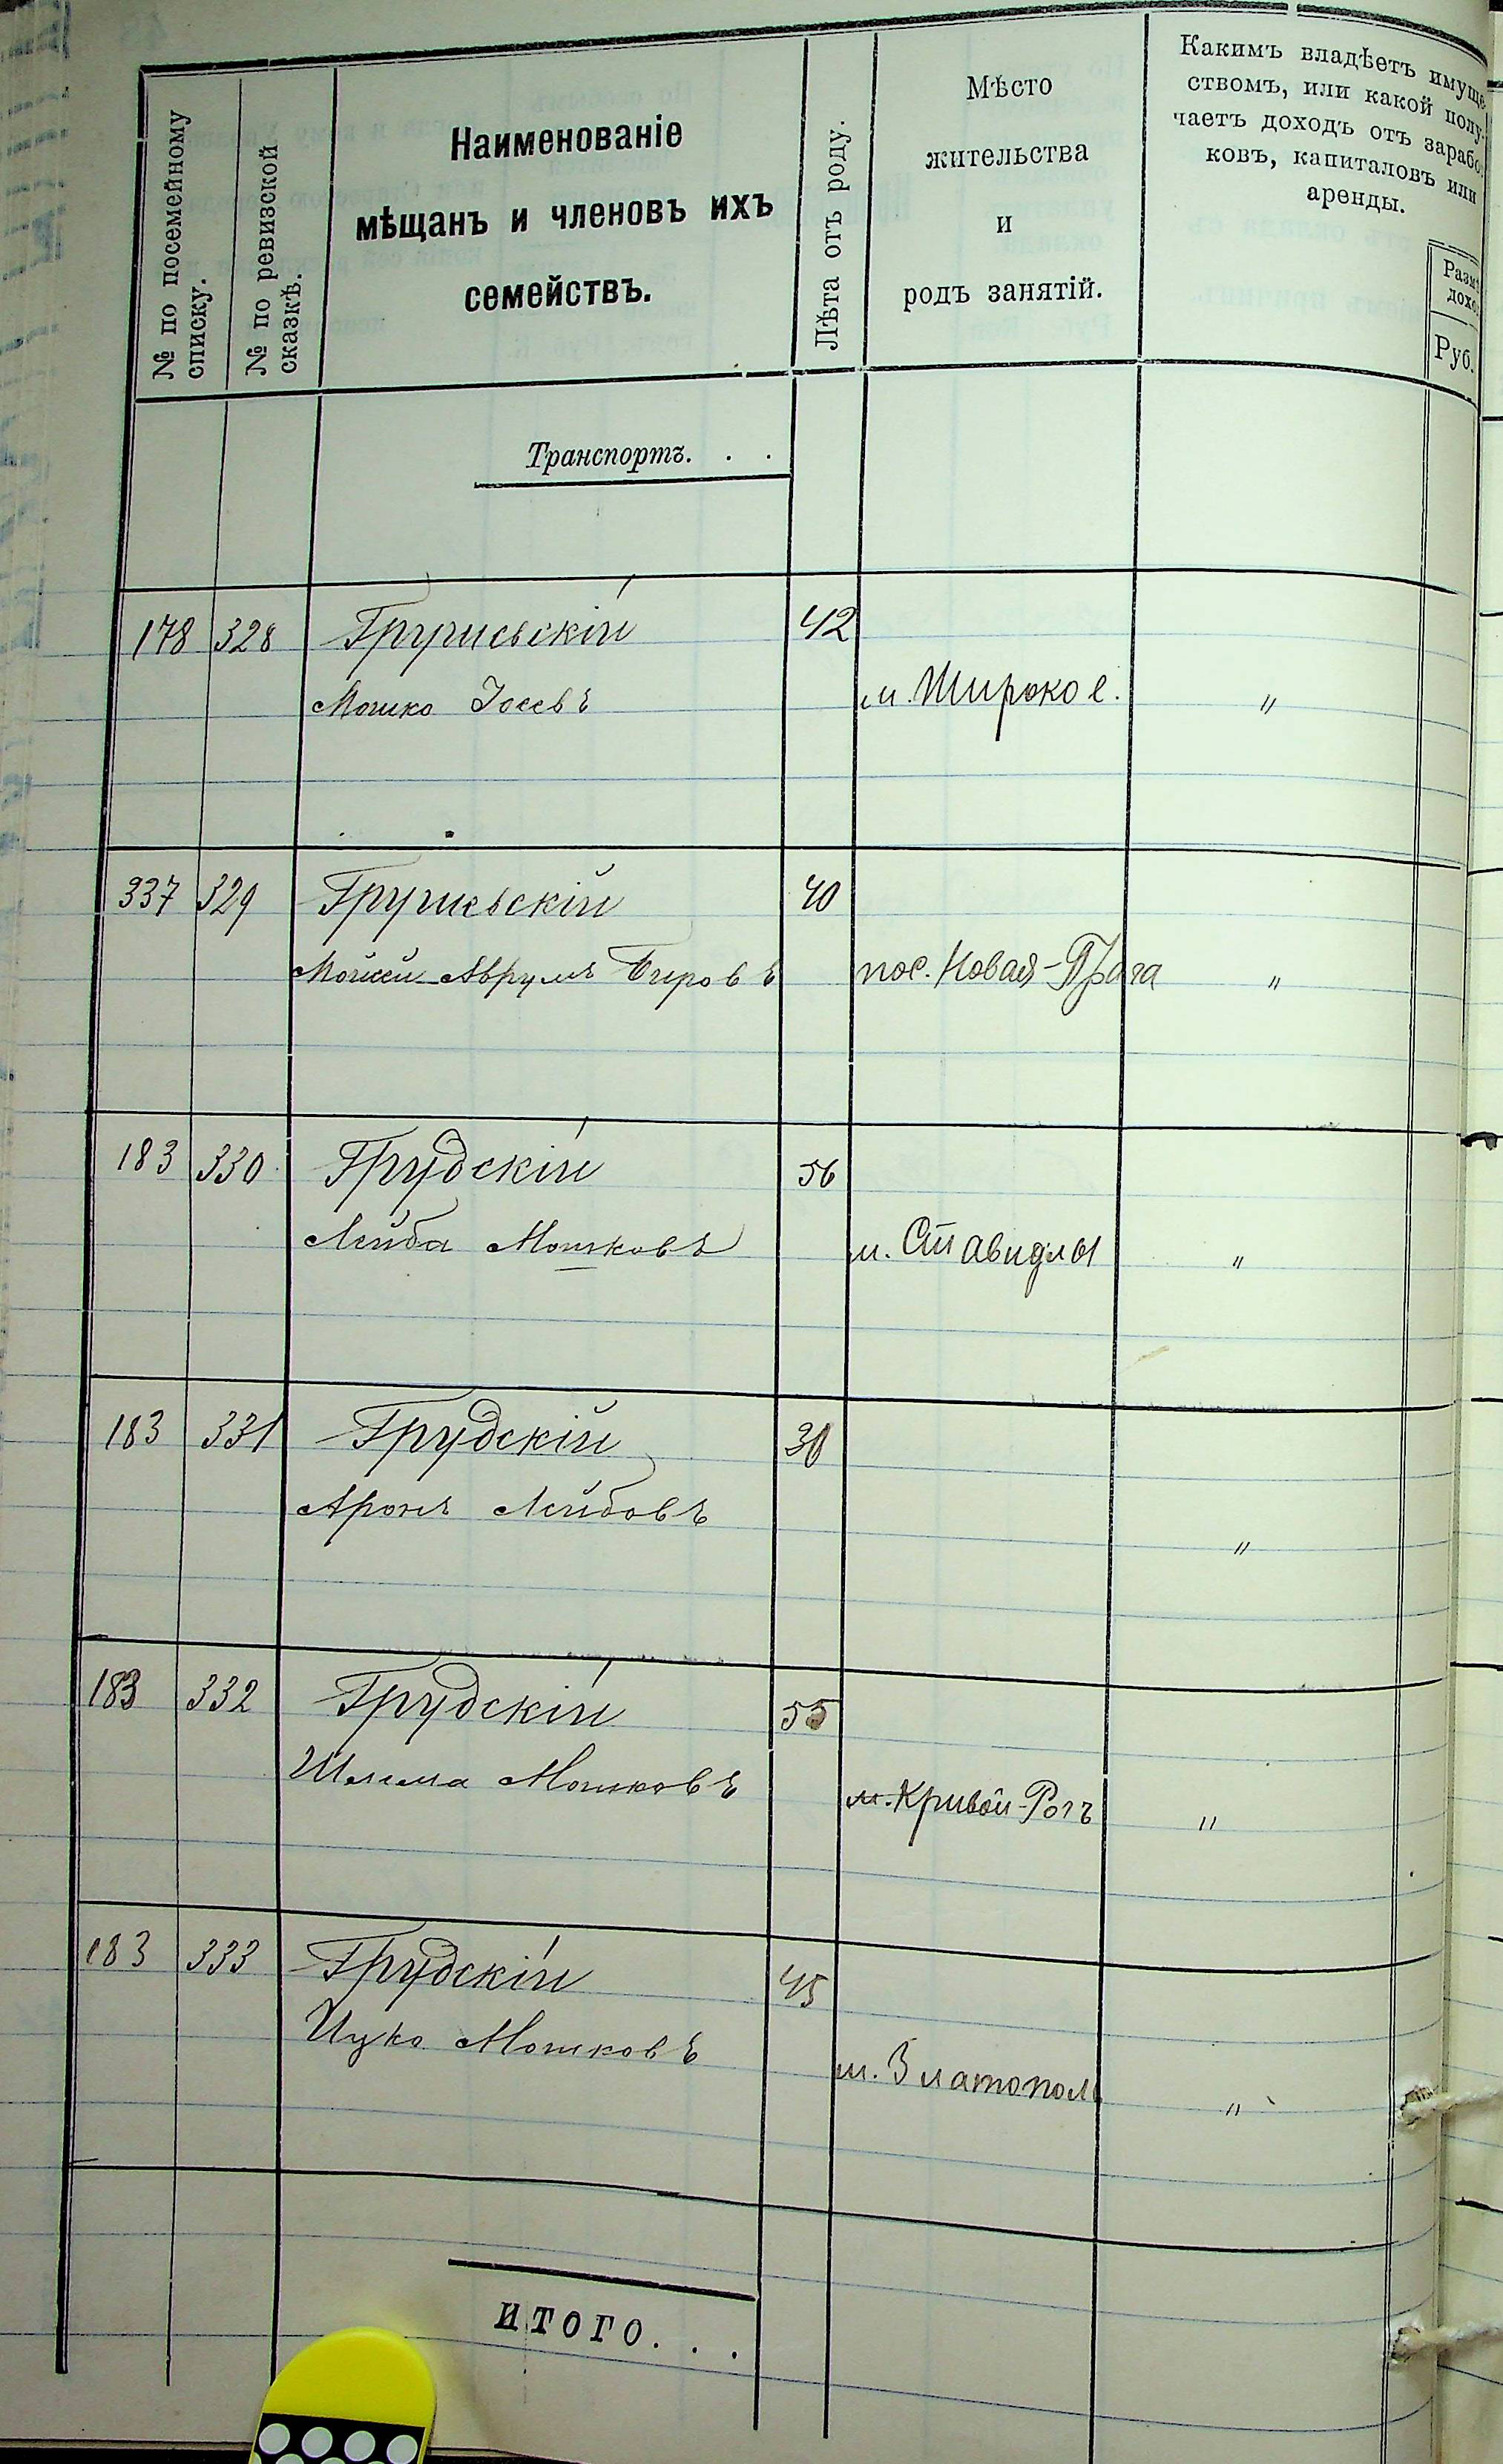 № по посемейному
списку.
№ по ревизской
сказкѣ.
Наименованіе
мѣщанъ и членовъ ихъ
семействъ.
Лѣта отъ роду.
Мѣсто
жительства
и
родъ занятій.
Какимъ владѣетъ имуще
ствомъ, или какой полу-
чаетъ доходъ отъ зарабо
ковъ, капиталовъ или
аренды.
Разм
дохо
Руб.
Транспортъ. . .
178 328 42
Мошко м. Широкое. "
337 329 40
Аврумъ Беровъ пос. Новая-Прага "
183 330 Грудскій 56
Лейба Мошковъ м. Ставидлы "
183 331 Грудскій 30
Аронъ Лейбовъ "
183 332 Грудскій 55
Шлема Мошковъ м. Кривой-Рогъ "
183 333 Грудскій 45
Ицко Мошковъ м. Златополь "
ИТОГО. . .